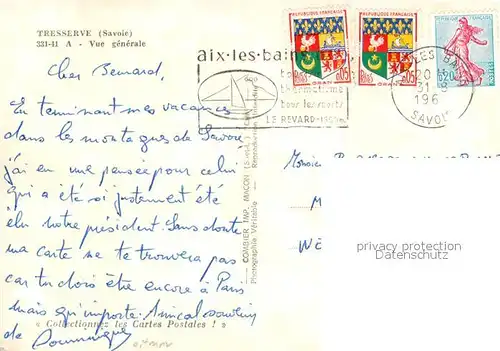 TRESSERVE (Savoie)
331-11 A - Vue générale
Cher Bernard,
En terminant mes vacances
dans les montagnes de Savoie
j'ai eu une pensée pour celui
qui a été si justement été
élu notre président. Sans doute
ma carte ne te trouvera pas
car tu dois être encore à Paris
mais qu'importe. Amical souvenir
de Dominique
« Collectionnez les Cartes Postales ! »
COMBIER IMP. MACON (S.-et-L.)
Photographie Véritable - Reproduction
aix-les-bains
thermalisme
tous les sports
LE REVARD
REPUBLIQUE FRANÇAISE
0,05
ORAN
REPUBLIQUE FRANÇAISE
0,05
ORAN
0,20
POSTES
LES BA
20 H
31-8
196
SAVOIE
Monsieur
M
WE
privacy protection
Datenschutz